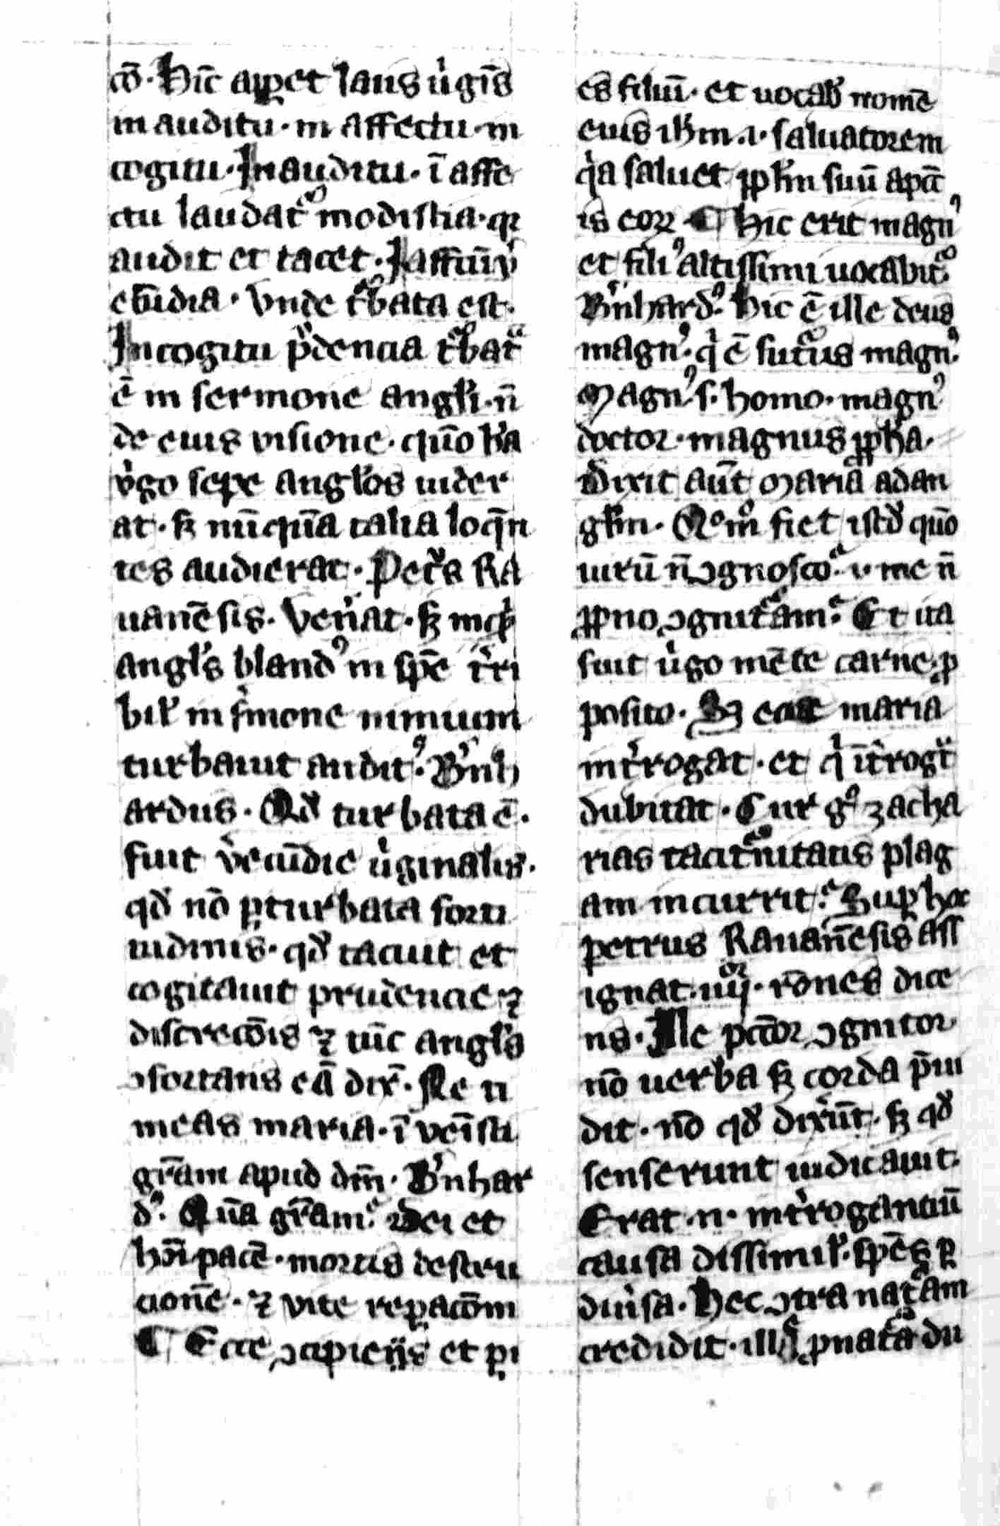 cō. Hic̄ appet laus ūgīs
in auditu. in affectu. in
cogitu. In auditu. ī affe
ctu laudat᷒ modistia. q̄
audit et tacet.
Vnde t᷒bata est.
In cogitu p̄dencia
ē in sermone angłi. n̄
de eius visione. quō
v̾go sepe angłos uider
at. sȝ nū̄quā talia loq̄n
tes audierat. Pet᷒s Ra
uanēsis. Ven̾at. sȝ
angłs bland᷒ in spē t̾ri
bił in s̾mone nimium
turbauit audit᷒. B̾nh
ardus. Qd̾ turbata ē.
fuit v̾ecūdie ūginalis.
qd̾ nō ꝑturbata forti
tudinis. qd̾ tacuit et
cogitauit prudencie ⁊
discrecōis ⁊ tūc angłs
ↄfortans eā dix̾. Ne ti
meas maria. ī venīsti
gr̄am apud dm̄. B̾nhar
d᷒. Qn̄a gr̄am. dei et
hōī pacē. mortis destru
cionē. ⁊ vite repacōm
¶ Ecce ↄcipiēs et pi
es filiū. et vocab̾ nomē
eius ihm .i. saluatorem
q̾a saluet ppłm suū a pcc̄
is eoꝝ. ¶ Hic erit magn᷒
et fili᷒ altissimi uocabit᷒
B̾nhard᷒. Hic ē ille deus
magn᷒. q̾ ē futur᷒us magn᷒.
Magn᷒ .s. homo. magn᷒
doctor. magnus ppha.
Dixit aūt Maria ad an
głm. Qōm̄ fiet istd̾ quō
uirū n̄ ↄgnosco. .i. me n̄
ppono ↄgnit᷒am. Et ita
fuit ūgo mēte carne ꝓ
posito. Sȝ ecce maria
int̾rogat. et q̾ īt̾rogat
dubitat. Cur g᷒ zacha
rias taciturnitatis plag
am incurrit. Sup hoc
petrus Rauanēsis ass
ignat .iiij. rōnes dice
ns. Ille pctōꝝ ↄgnitor
nō uerba sȝ corda p̄ui
dit. nō qd̾ dix̾unt. sȝ qd̾
senserunt iudicauit.
Erat .n. int̾roganciū
causa dissimił. spēs ꝑ
diu̾sa. Hec ↄtra nat᷒am
credidit. ille ꝓ nat᷒a du